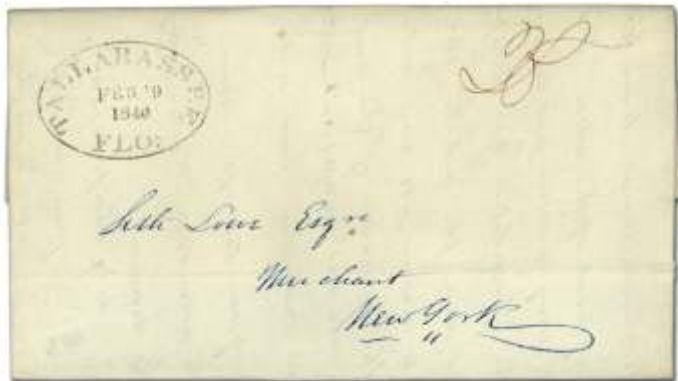 TALLAHASSEE
FEB
1840
FLO:
Seth Low Esqr
Merchant
New York